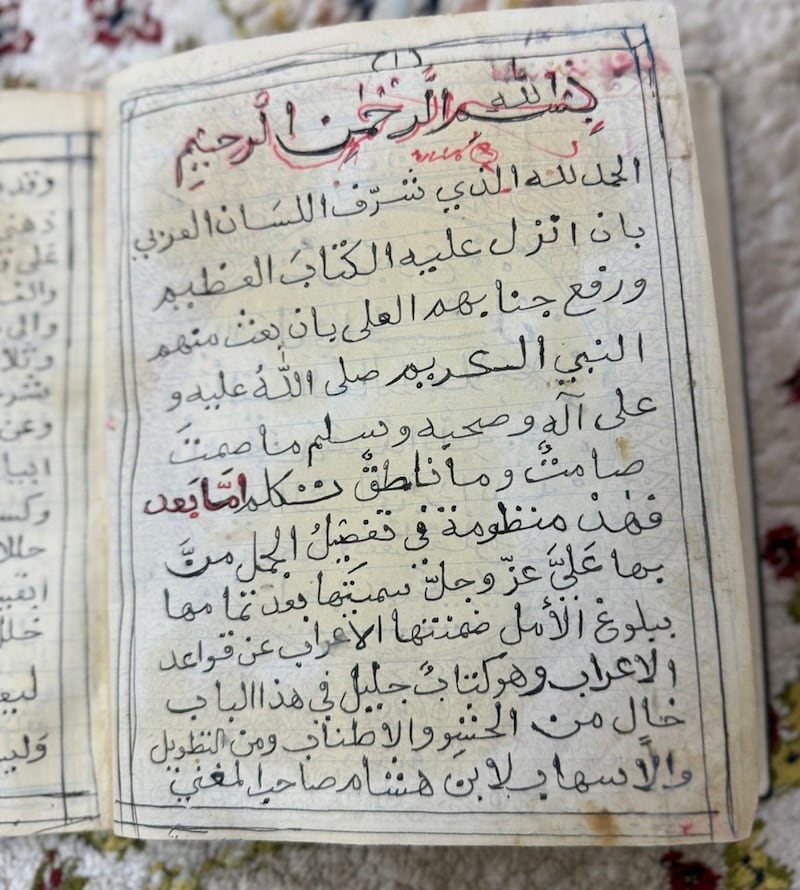 (١)
بِسْمِ اللّٰه الرَّحْمٰنِ الرحيمِ
الحمد لله الذي شرّف اللسَان العربي
بان انزل عليه الكتابَ العظيم
ورفع جنابهم العلى بان بعث منهم
النبي الكريم صلى اللّٰهُ عليه و
على آله وصحبه وسلم ما صمتَ
صامتٌ وما ناطقٌ تكلم امَّا بَعد
فهٰذه منظومة في تفصيلُ الجمل منَّ
بها عَليَّ عزّ وجلّ سميتها بعد تمامها
ببلوغ الأمل ضمنتها الاعراب عن قواعد
الاعراب وهو كتابٌ جليل في هذا الباب
خالٍ من الحشو والاطناب ومن التطويل
والاسهاب لابن هشام صاحب المغني
وقد
على
وعن